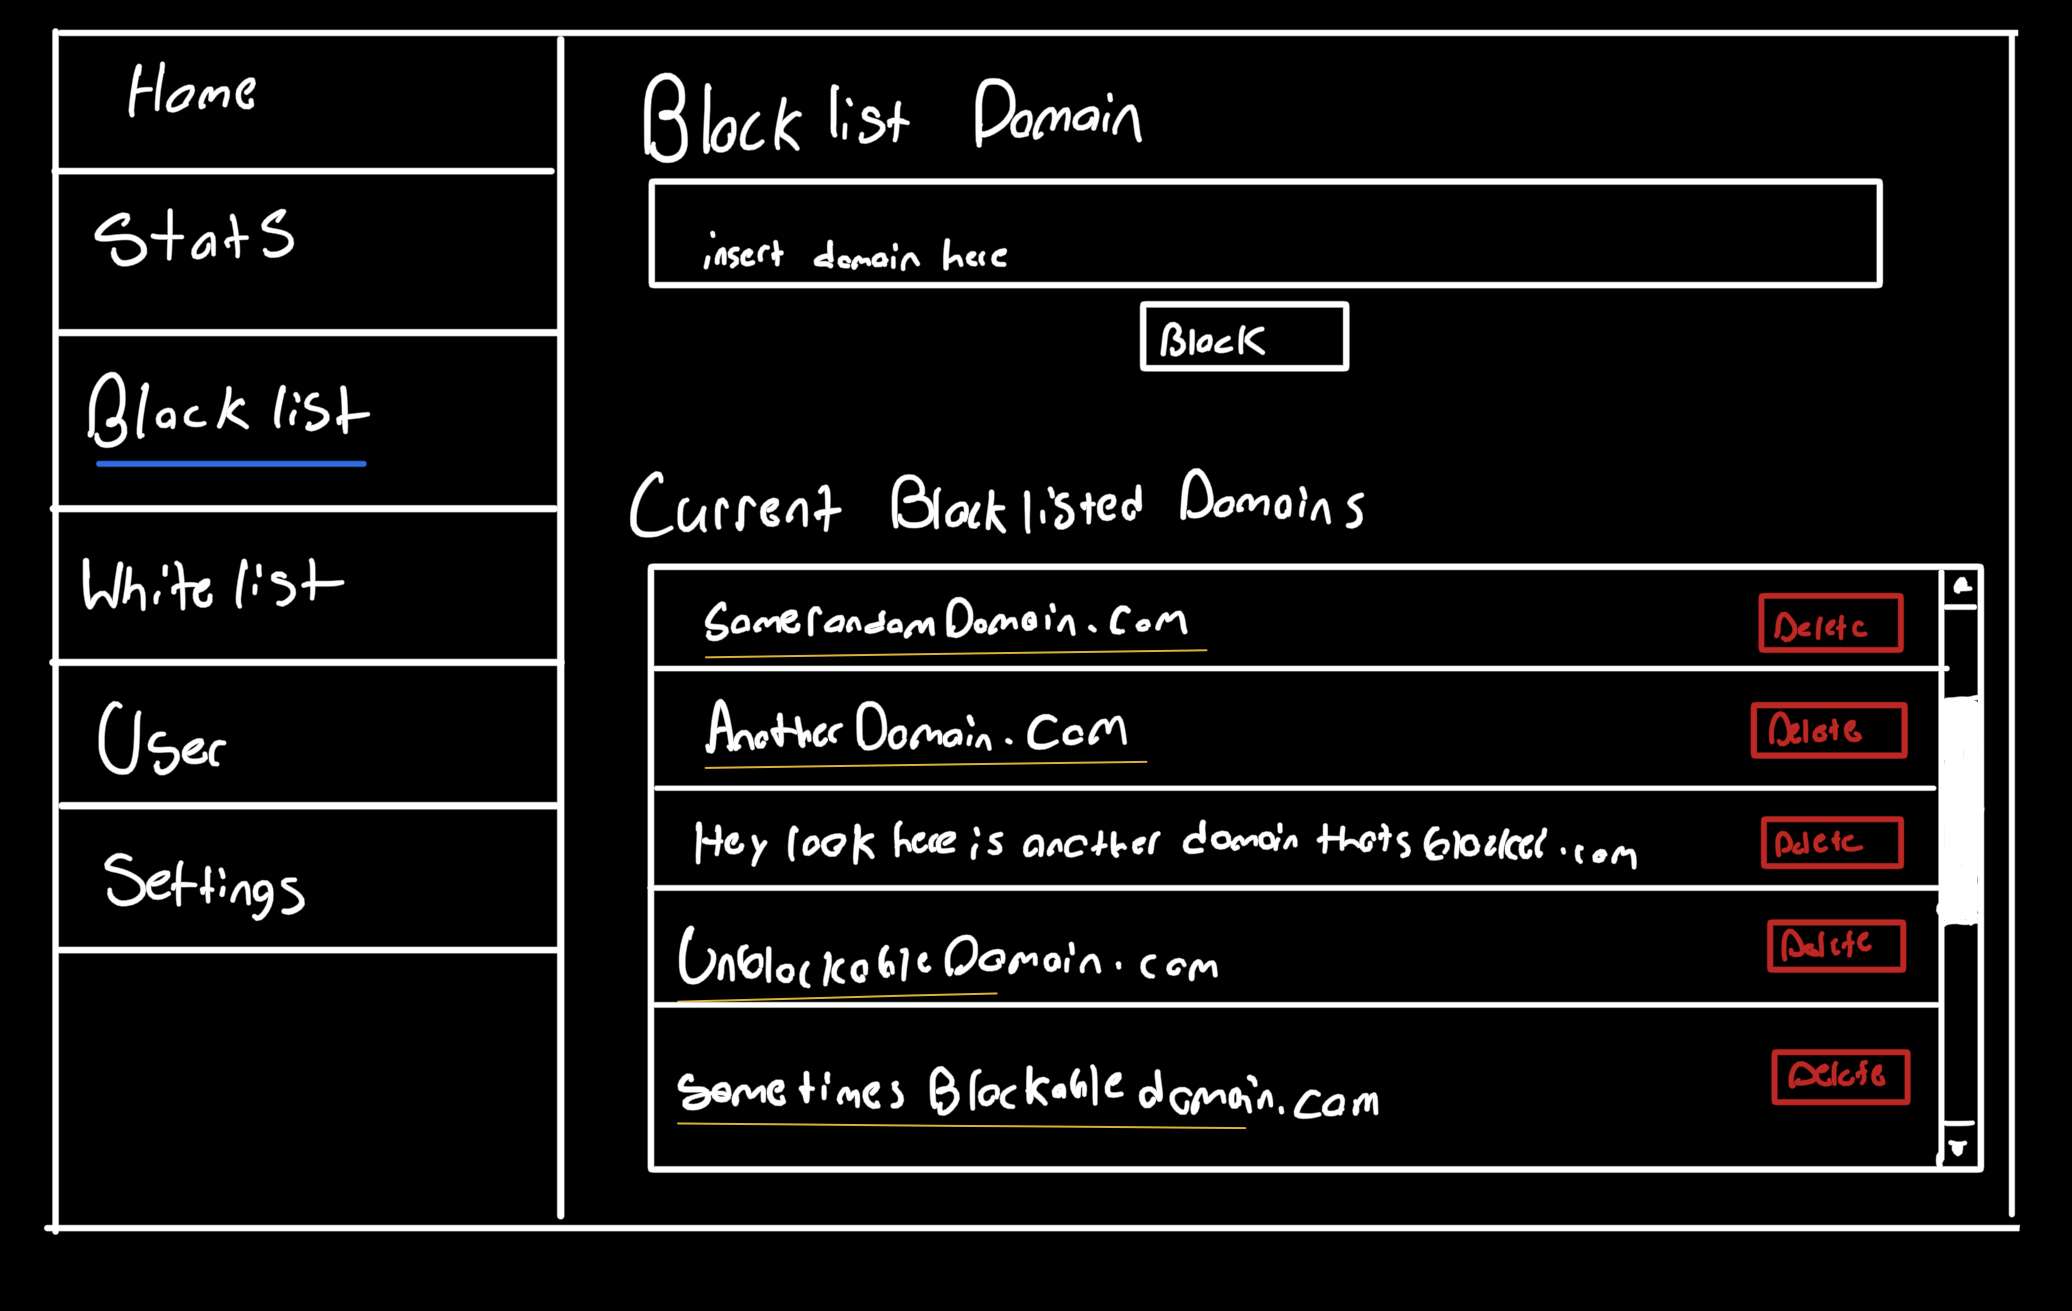 Home
Stats
Block list
White list
User
Settings
Block list Domain
insert domain here
Block
Current Blocklisted Domains
SomerandomDomain.com
Delete
AnotherDomain.com
Delete
Hey look here is another domain thats blocked.com
Delete
UnblockableDomain.com
Delete
Sometimes Blockable domain.com
Delete